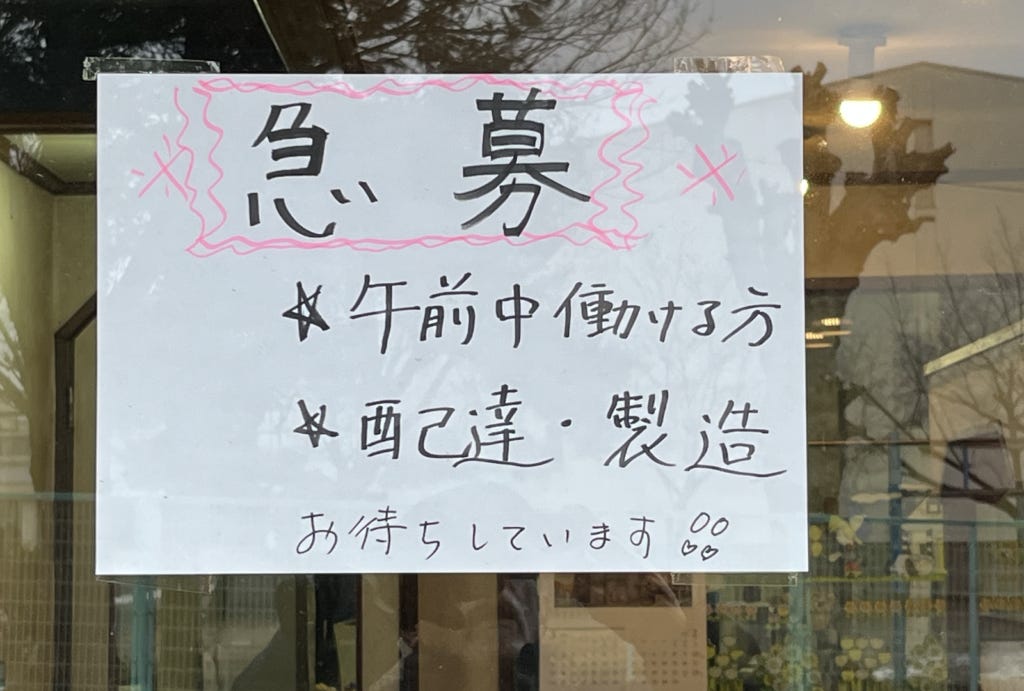 急募
★午前中働ける方
★配達・製造
お待ちしています